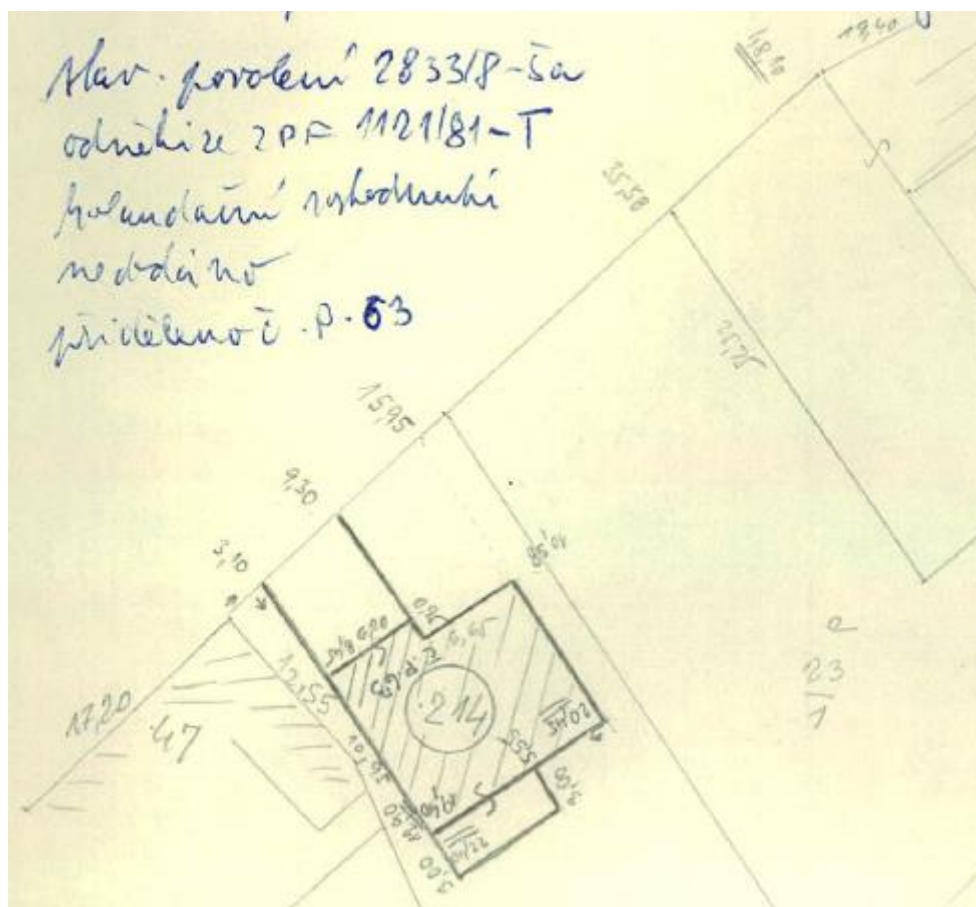 stav. povolení 2833/8-Ša
odnětí ze ZPF 1121/81-T
kolaudační rozhodnutí
nedodáno
přiděleno č.p. 63
18,40
48,10
35,58
25,25
15,95
9,30
3,10
0,95
17,20
47
12,55
č.p. 63
.214
5,55
3,00
3,00
23
1